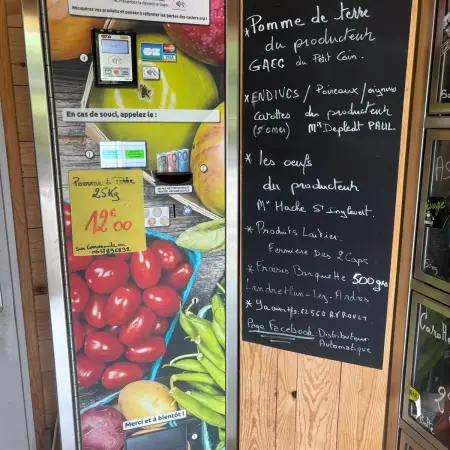 Récupérez vos produits et pensez à refermer les portes des casiers svp !
En cas de souci, appelez le :
Pomme de terre
25Kg
12€00
Merci et à bientôt !
* Pomme de terre
du producteur
GAEC du Petit Coin.
* ENDIVES / Poireaux / oignons
Carottes du producteur
(St omer) Mr Depledt PAUL.
* les oeufs
du producteur
Mr Hache St Inglevert.
* Produits Laitier
Fermière Des 2 Caps
* Fraises Barquette 500grs
Landrethun-Les-Ardres
* Yaourts: 62560 AVROULT
Page Facebook: Distributeur
Automatique